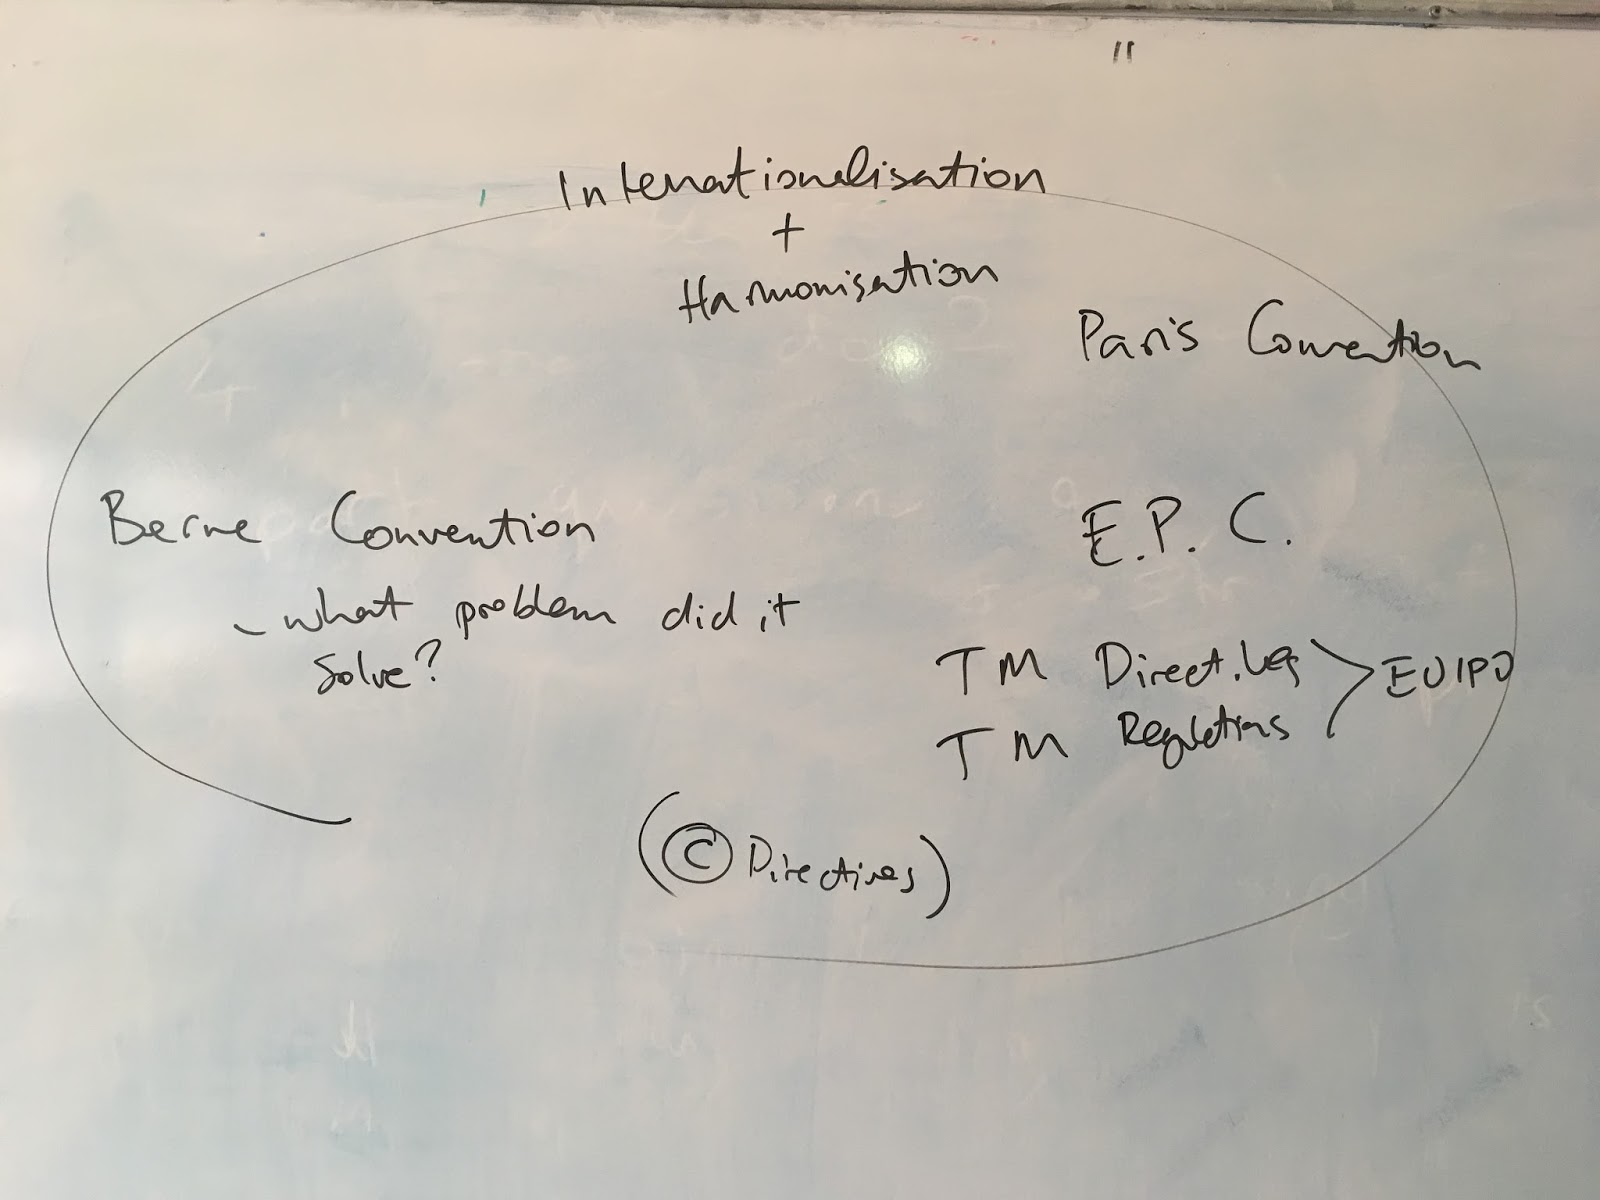 11
Internationalisation
+
Harmonisation
Paris Convention
Berne Convention
- what problem did it
solve?
E.P.C.
TM Directives > EUIPO
TM Regulations
(© Directives)